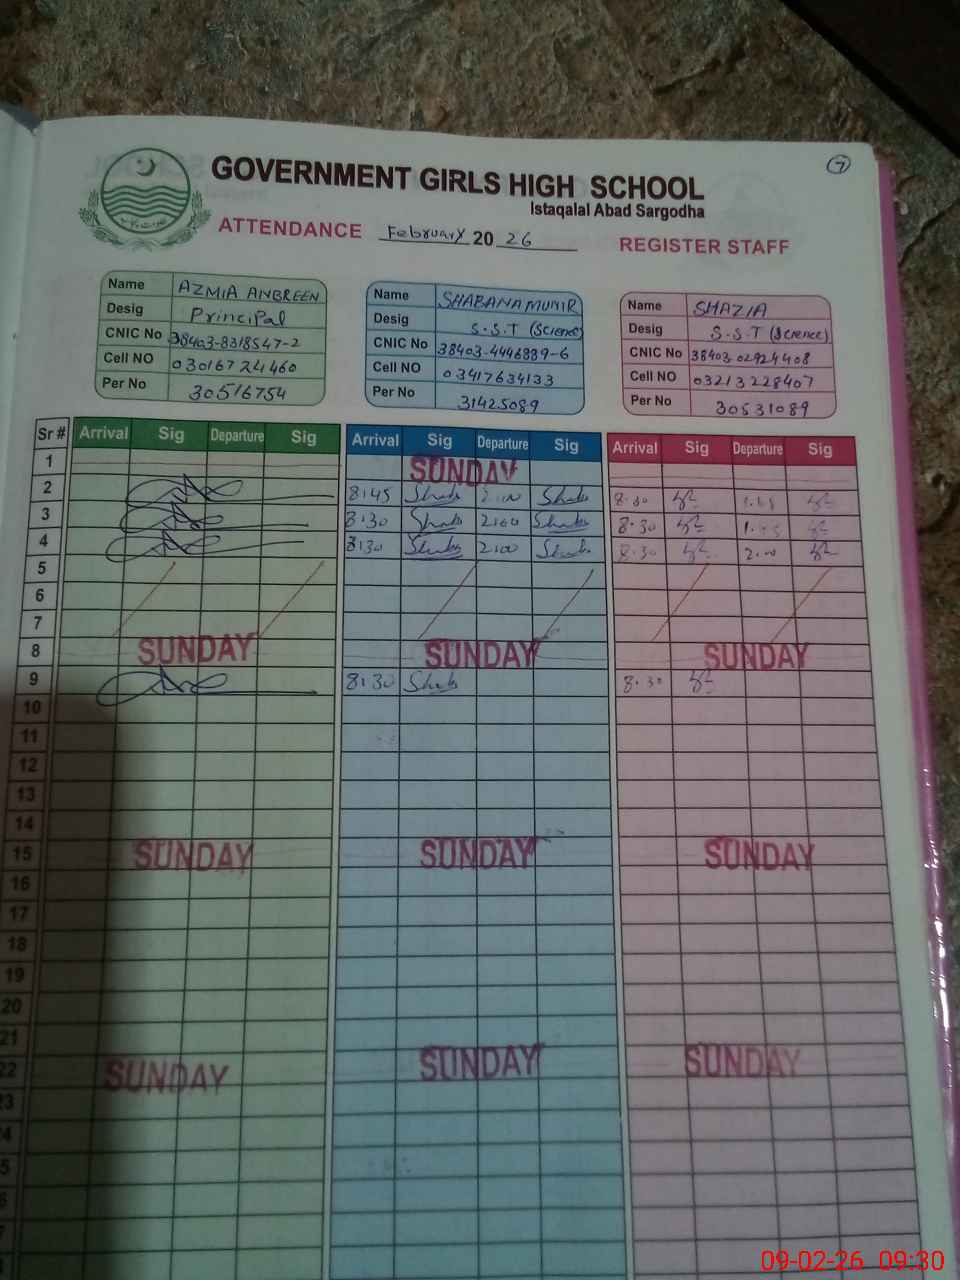 7
GOVERNMENT GIRLS HIGH SCHOOL
Istaqalal Abad Sargodha
ATTENDANCE February 20 26 REGISTER STAFF
Name AZMIA ANBREEN
Desig Principal
CNIC No 38403-8318547-2
Cell NO 03016724460
Per No 30516754
Name SHABANA MUNIR
Desig S.S.T (Science)
CNIC No 38403-4446889-6
Cell NO 03417634133
Per No 31425089
Name SHAZIA
Desig S.S.T (Science)
CNIC No 38403 02924408
Cell NO 03213228407
Per No 30531089
Sr # Arrival Sig Departure Sig Arrival Sig Departure Sig Arrival Sig Departure Sig
1 SUNDAY
2 8:45 8:30
3 8:30 2:00 8:30
4 8:30 2:00 8:30 2:00
5
6
7
8 SUNDAY SUNDAY SUNDAY
9 8:30 8:30
10
11
12
13
14
15 SUNDAY SUNDAY SUNDAY
16
17
18
19
20
21
22 SUNDAY SUNDAY SUNDAY
23
4
5
6
09-02-26 09:30